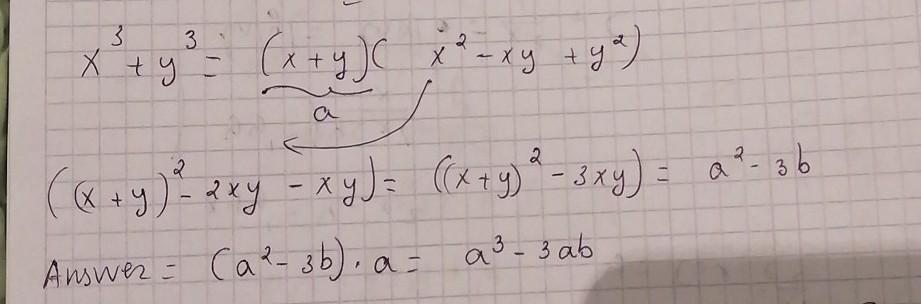 x³ + y³ = (x + y)( x² - xy + y²)
a
((x + y)² - 2xy - xy) = ((x + y)² - 3xy) = a² - 3b
Answer = (a² - 3b) · a = a³ - 3ab